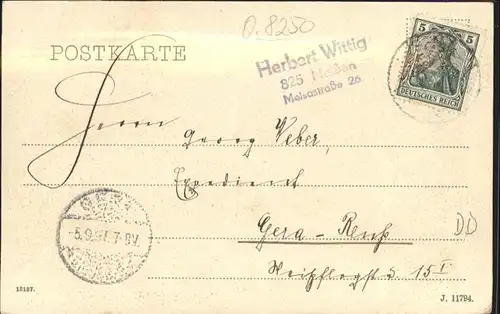 O.8250
POSTKARTE
Herbert Wittig
825 Meißen
Meisastraße 26
5 5
DEUTSCHES REICH
Herrn
Georg Weber,
Expedient
Gera-Reuß
15 I
5.9. 7-8V.
DD
18187.
J. 11794.